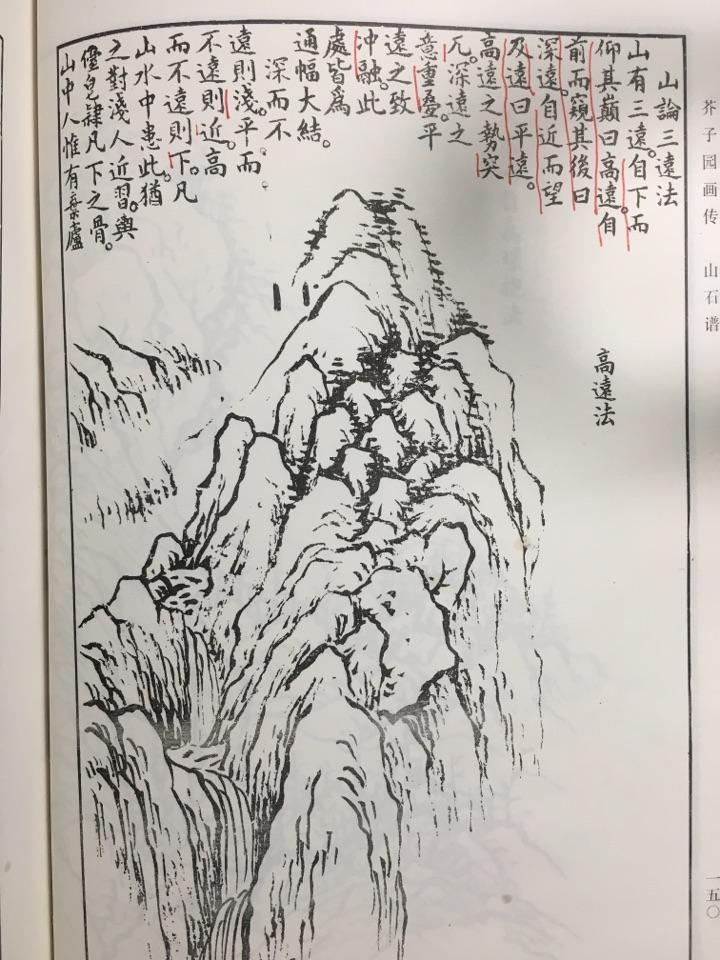 芥子园画传 山石谱
山論三遠法
山有三遠。自下而
仰其巔曰高遠。自
前而窺其後曰
深遠。自近而望
及遠曰平遠。
高遠之勢突
兀。深遠之
意重疊。平
遠之致
冲融。此
處皆爲
通幅大結。
深而不
遠則淺。平而
不遠則近。高
而不遠則下。凡
山水中患此。猶
之對淺人近習。輿
儓皂隸凡下之骨。
山中人惟有棄廬
高遠法
一五〇